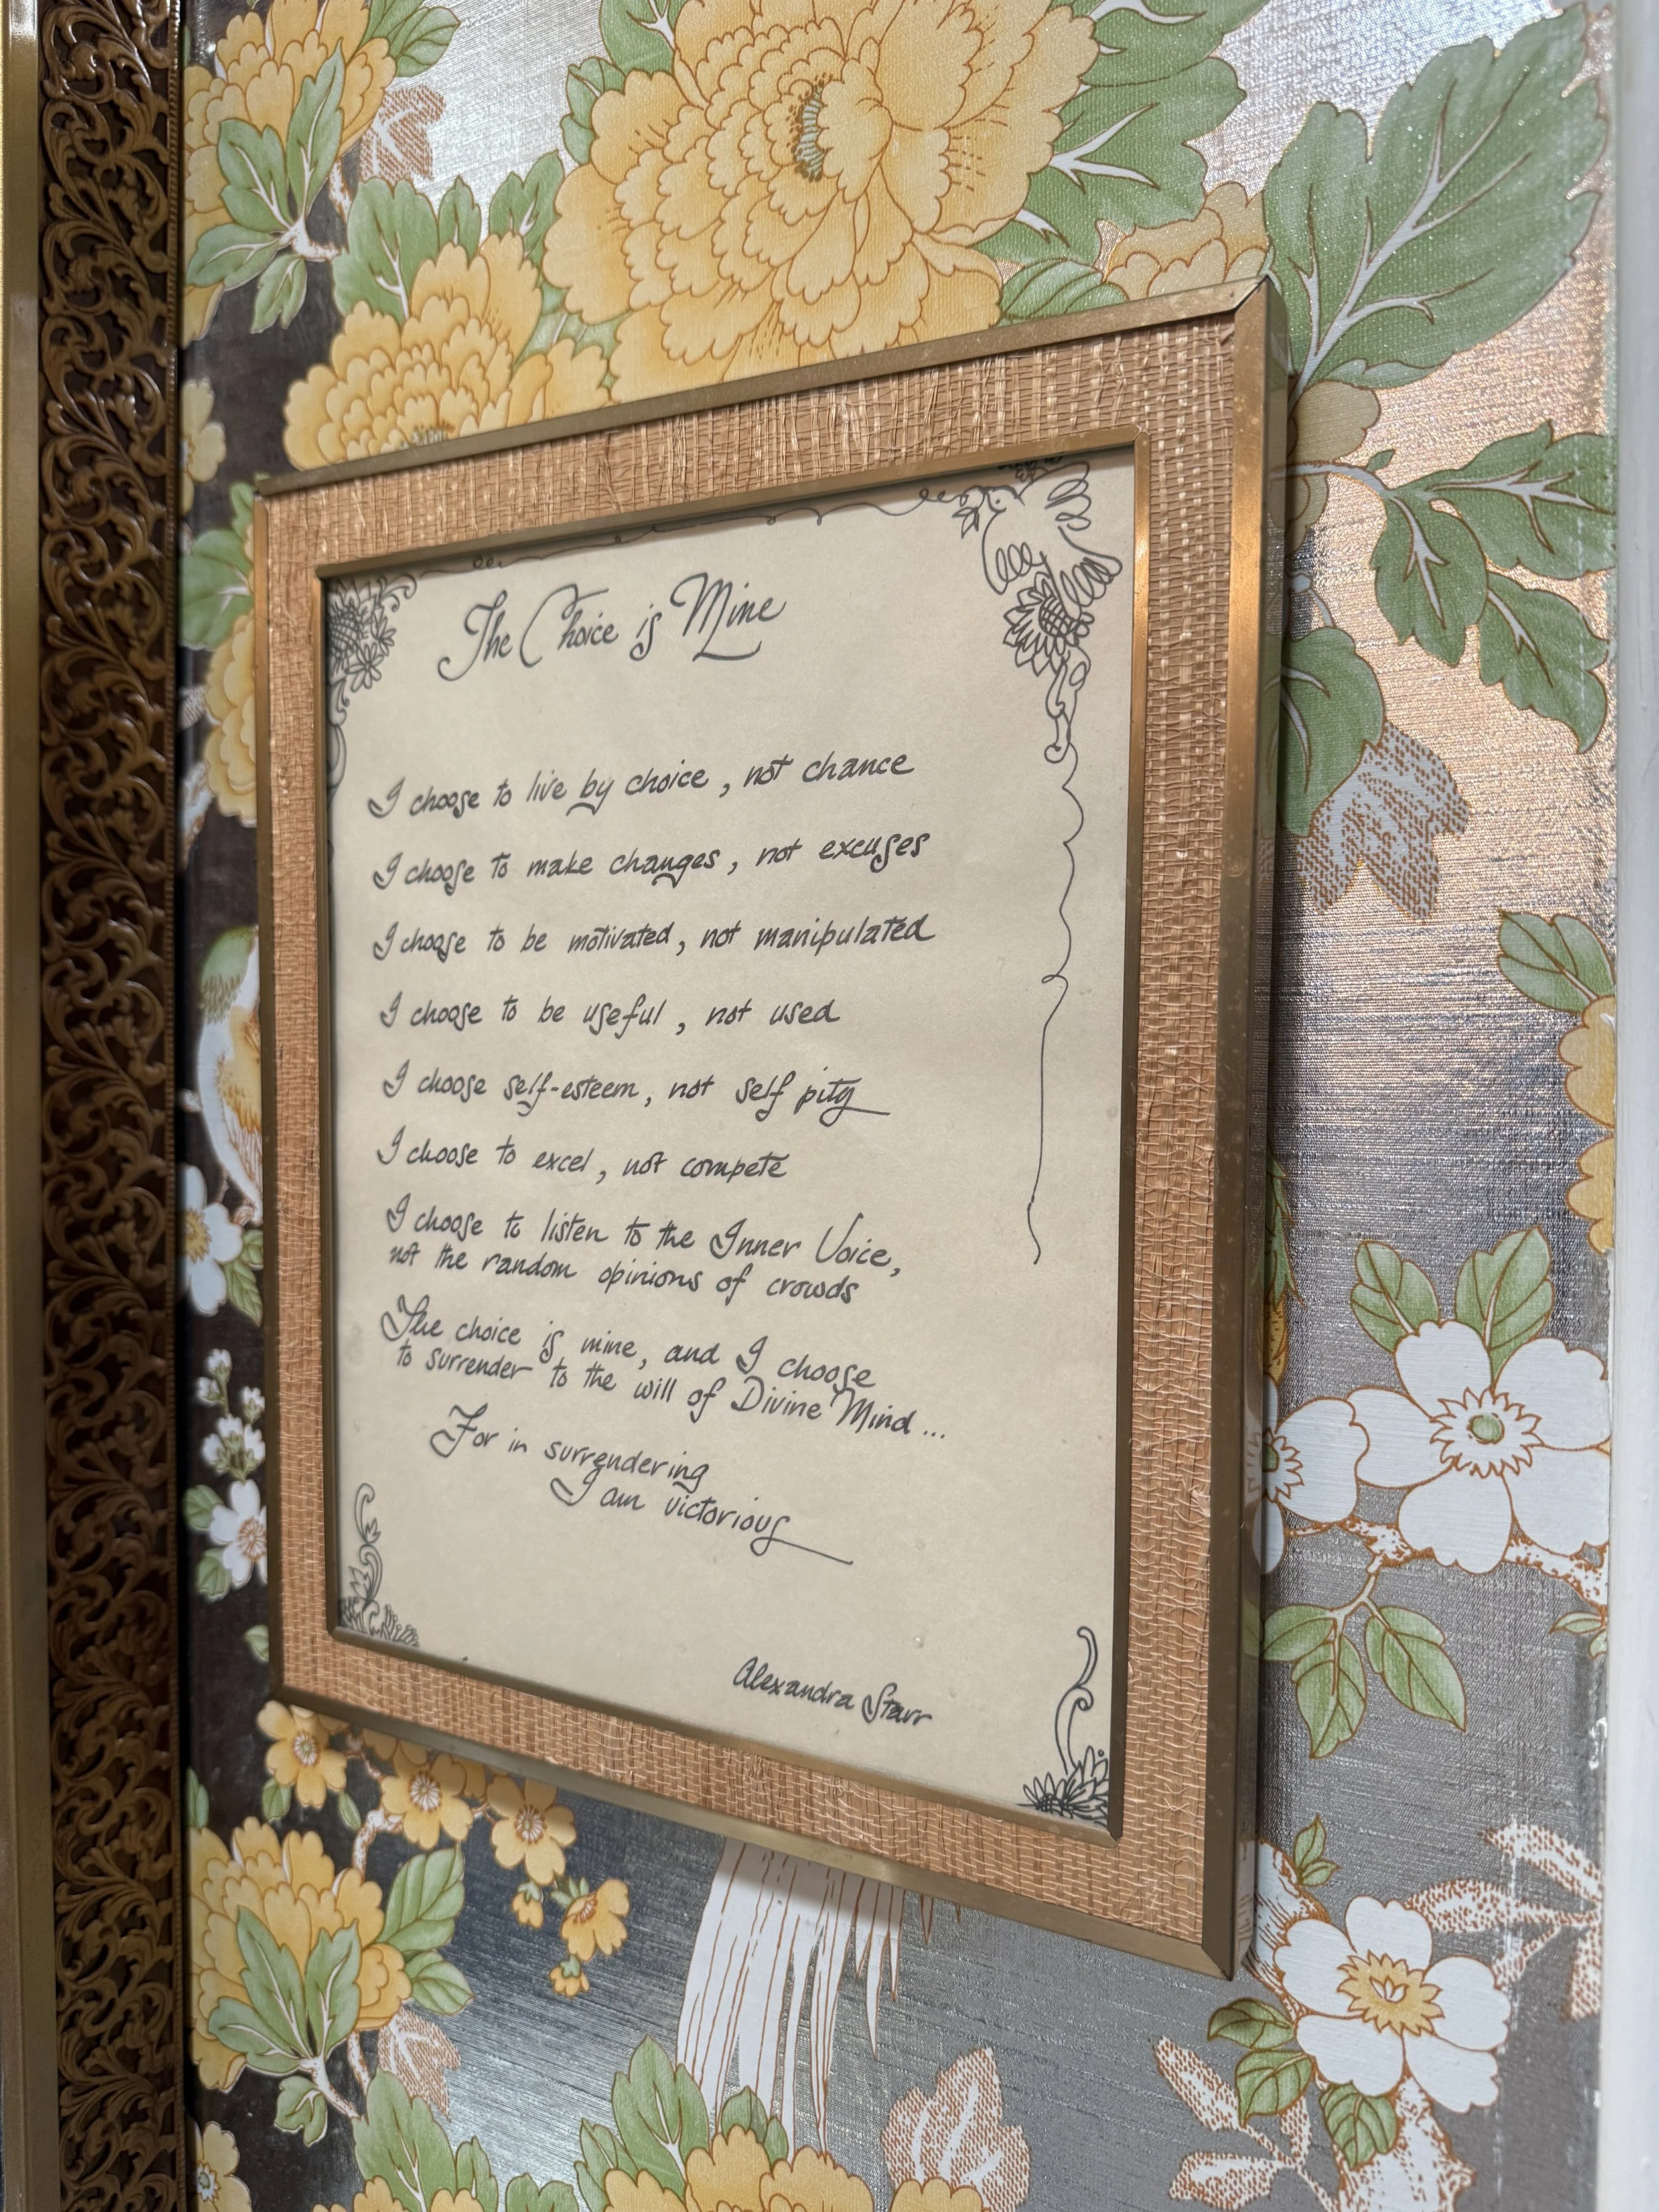 The Choice is Mine
I choose to live by choice, not chance
I choose to make changes, not excuses
I choose to be motivated, not manipulated
I choose to be useful, not used
I choose self-esteem, not self pity
I choose to excel, not compete
I choose to listen to the Inner Voice,
not the random opinions of crowds
The choice is mine, and I choose
to surrender to the will of Divine Mind...
For in surrendering
I am victorious
Alexandra Starr